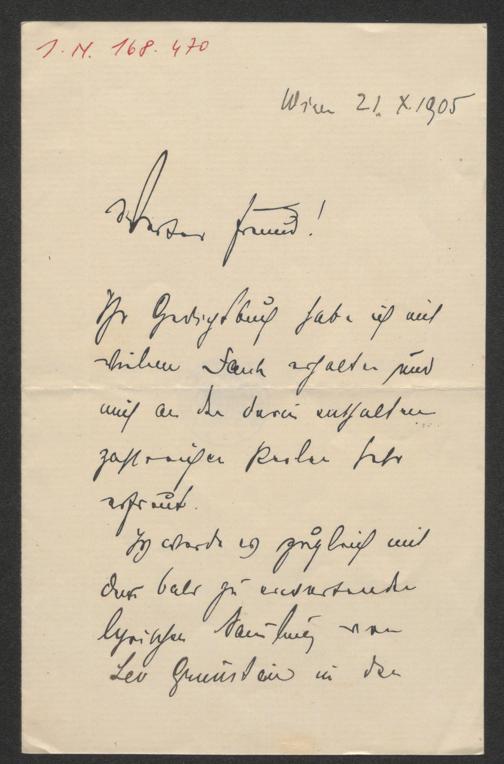 I.N. 168.470
Wien 21. X. 1905
Werter Freund!
Ihr Gedichtbuch habe ich mit
vielem Dank erhalten und
mich an den darin enthaltenen
zahlreichen Perlen sehr
erfreut.
Ich werde es zugleich mit
der bald zu erwartenden
lyrischen Sammlung von
Leo Grünstein in den